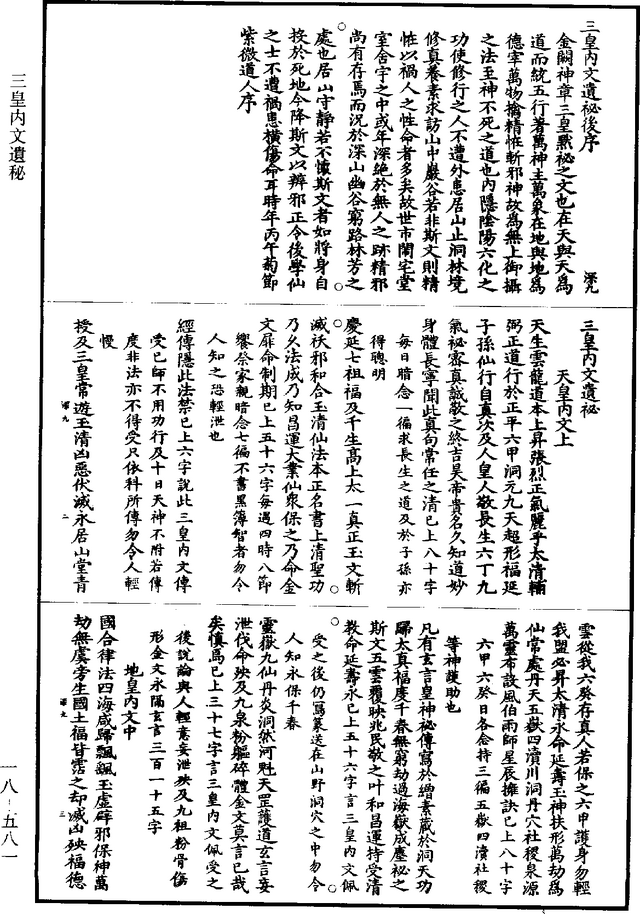 三皇內文遺秘
三皇內文遺秘後序
深九
金闕神章三皇默秘之文也在天與天爲
道而統五行著萬神主萬象在地與地爲
德宰萬物擒精恠斬邪神故爲無上御攝
之法至神不死之道也內隱陰陽六化之
功使修行之人不遭外患居山止洞林境
修真養素求訪山中巖谷若非斯文則精
恠以禍人之性命者多矣故世市闤宅堂
室舍宇之中或年深絶於無人之跡精邪
尚有存焉而況於深山幽谷窮路林芳之
處也居山守靜若不懷斯文者如將身自
投於死地今降斯文以辨邪正令後學仙
之士不遭禍患橫傷命耳時年丙午蒭節
紫微道人序
三皇內文遺秘
天皇內文上
天生雲龍道本上昇張烈正氣麗乎太清輔
弼正道行於正平六甲洞元九天超形福延
子孫仙行自真次及人皇人敬長生六丁九
氣祕密真誠敬之終吉昊帝貴名久知道妙
身體長寧聞此真句常任之清已上八十字
每日暗念一徧求長生之道及於子孫亦
得聰明
慶延七祖福及千生髙上太一真正玉文斬
滅祅邪和合玉清仙法本正名書上清聖功
乃久法成乃知昌運大業仙衆保之乃命金
文扉命制期已上五十六字每遇四時八節
饗祭家親暗念七徧不書黑簿智者勿令
人知之恐輕泄也
經傳隱此法禁已上六字說此三皇內文傳
受已師不用功行及十日天神不附若傳
度非法亦不得受只依科所傳勿令人輕
慢
授及三皇常遊玉清凶惡伏滅永居山堂青
深九
二
雲從我六癸存真人若保之六甲護身勿輕
我盟必昇太清永命延壽玉神扶形萬劫爲
仙常處丹天五嶽四瀆川洞丹穴社稷泉源
萬靈布設風伯雨師星辰擁訣已上八十字
六甲六癸日各念持三徧五嶽四瀆社稷
等神護助也
凡有玄言皇神秘傳寫於繒素藏於洞天功
歸太真福度千春無窮劫過海嶽成塵祕之
斯文五雲覆映兆民敬之叶和昌運持受清
教命延壽永已上五十六字言三皇內文佩
受之後仍寫篆送在山野洞穴之中勿令
人知永保千春
靈嶽九仙丹炎洞然河魁天罡護道玄言妄
泄伐命殃及九泉粉軀碎體金文莫言已哉
矣慎焉已上三十七字言三皇內文佩受之
後說論與人輕意妄泄殃及九祖粉骨傷
形金文永隔玄言三百一十五字
地皇內文中
國合律法四海咸歸飄飆玉虛辟邪保神萬
劫無虞旁生國土福皆霑之却滅凶殃福德
深九
三
一八-五八一